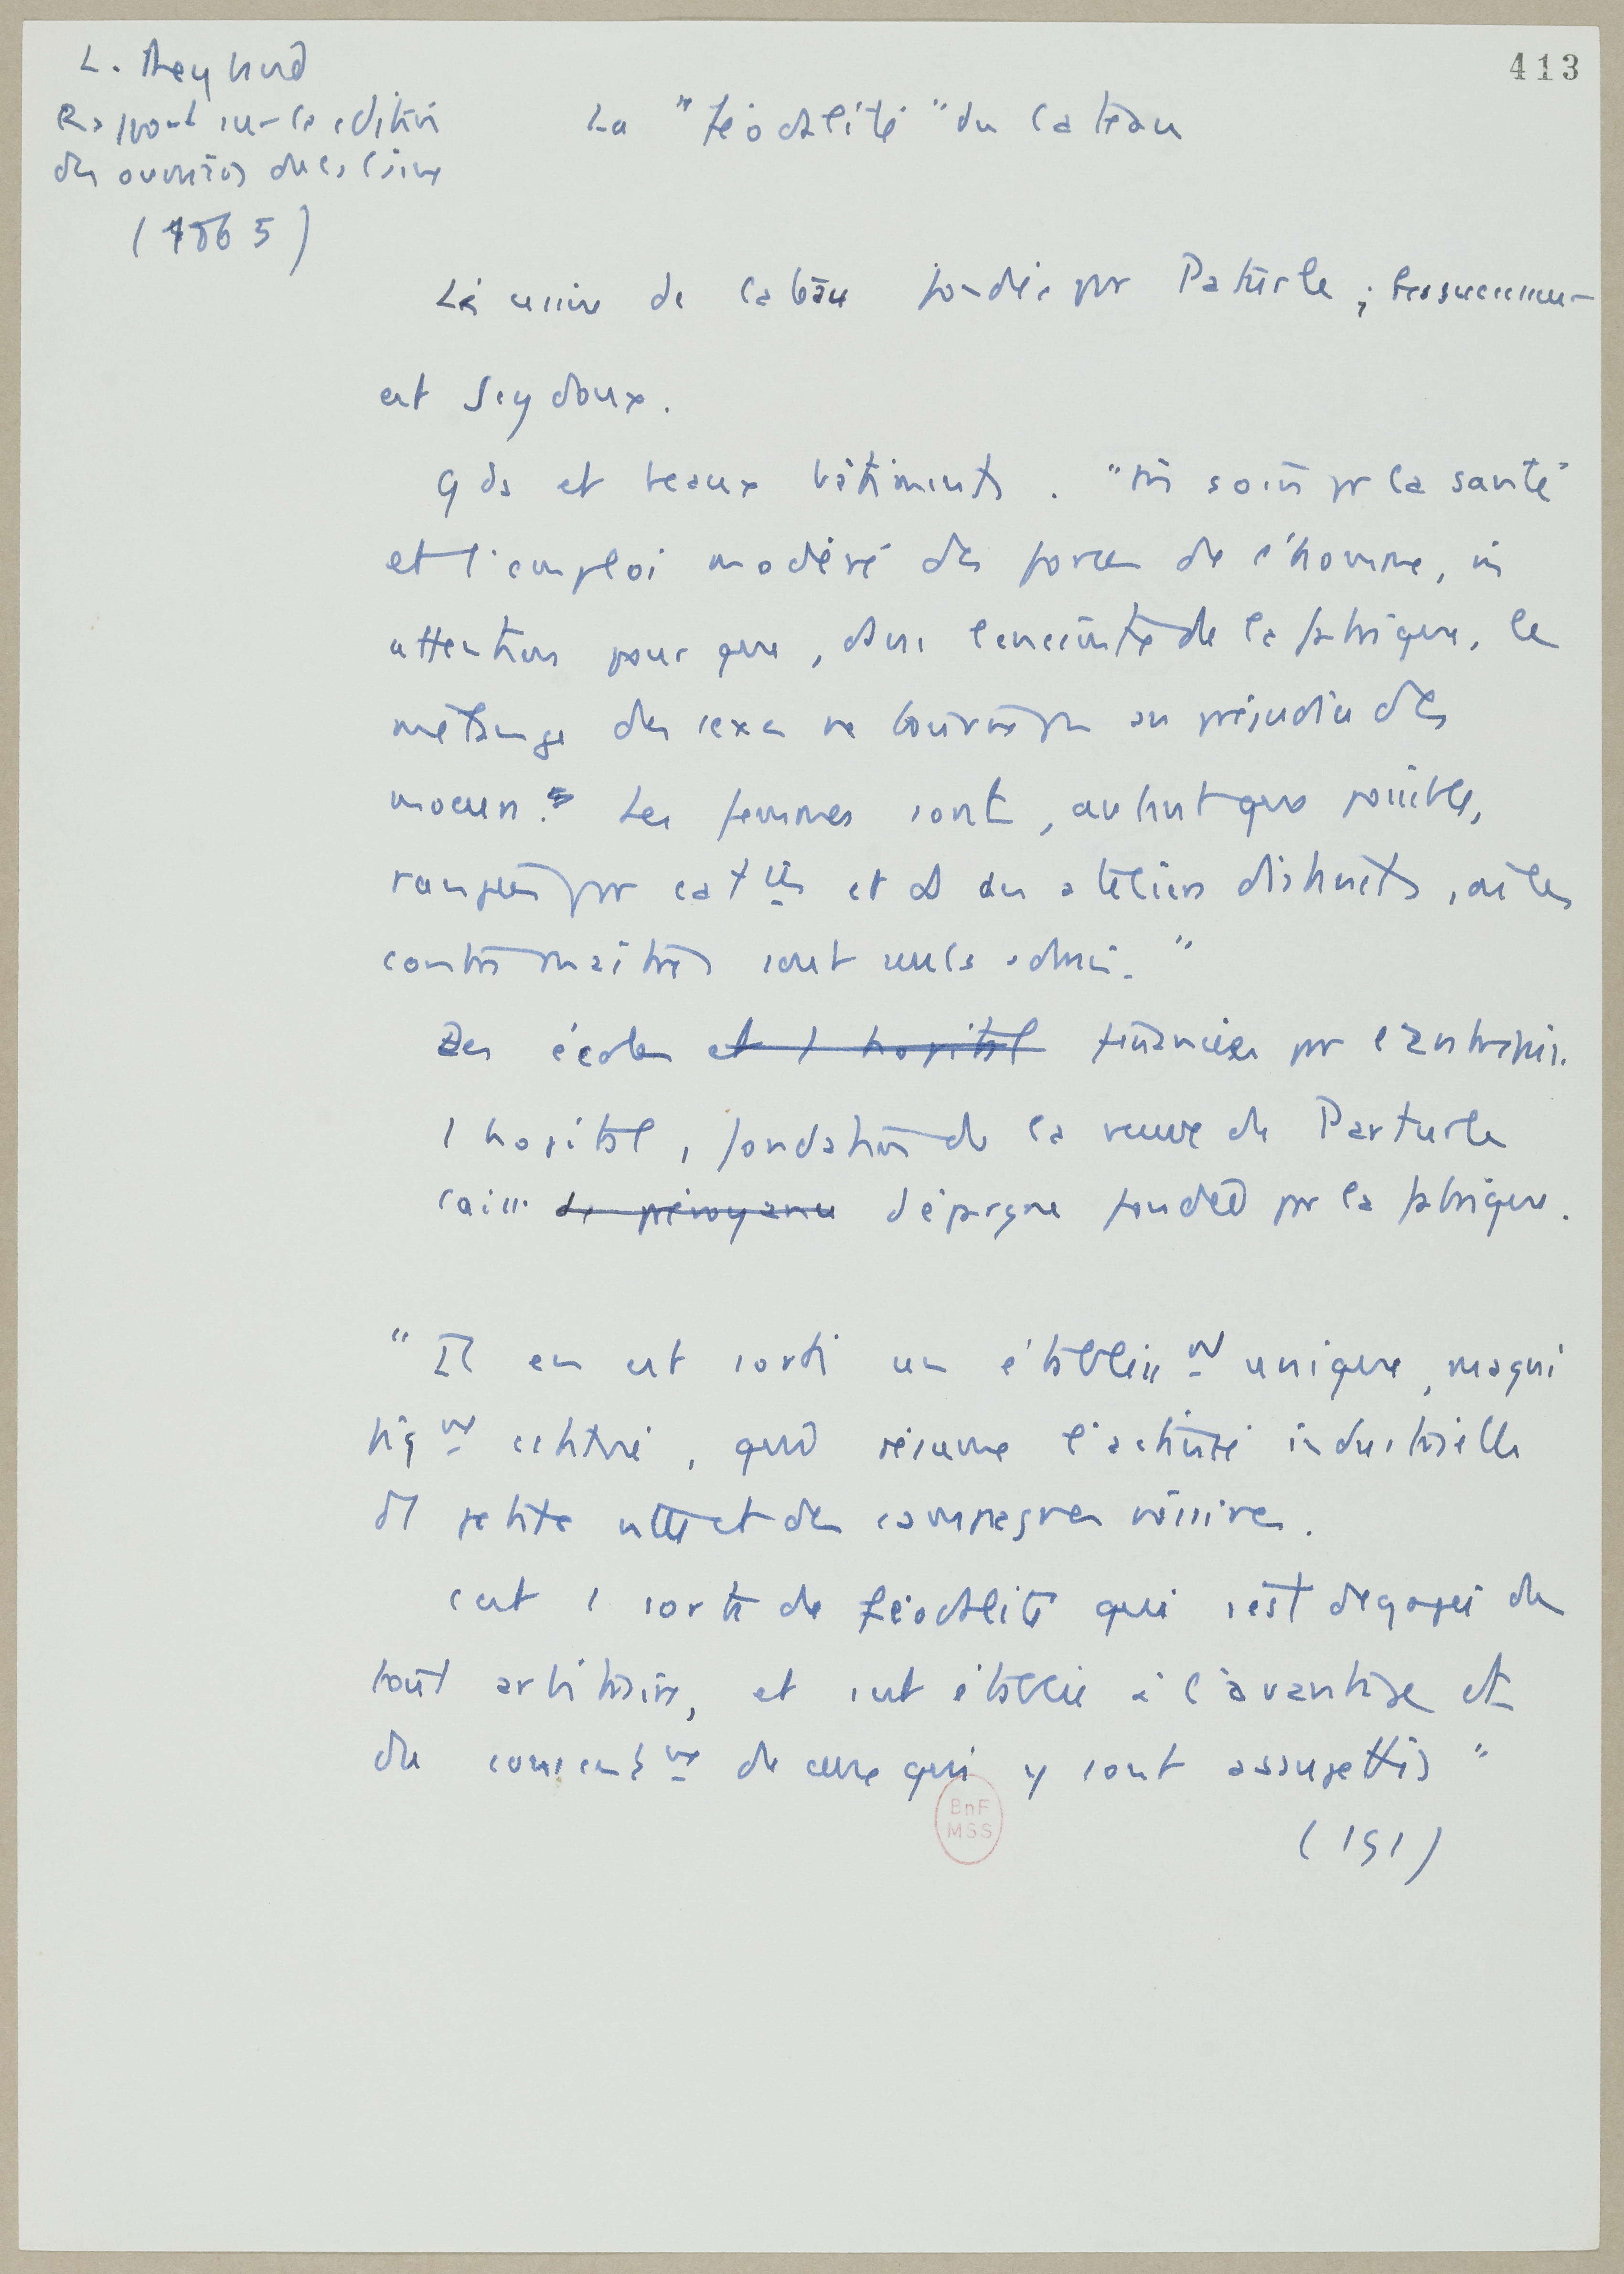 413
L. Reybaud
Rapport sur la condition
des ouvriers de la laine
(1865)
La "féodalité" du Cateau
L'usine de Cateau fondée par Paturle ; le successeur
est Seydoux.
Gds et beaux bâtiments. "un soin pr la santé
et l'emploi modéré des forces de l'homme, une
attention pour que, dans l'enceinte de la fabrique, le
mélange des sexes ne tourne pas au préjudice des
moeurs." Les femmes sont, autant que possible,
rangées par caties et ds des ateliers distincts, où les
contremaîtres sont seuls admis."
Des écoles et 1 hopital financées par l'entreprise.
1 hopital, fondation de la veuve de Parturle
caisse de prévoyance d'épargne fondée par la fabrique.
"Il en est sorti un établisst unique, magni
fiqnt , qui résume l'activité industrielle
d'1 petite ville et des campagnes voisines.
C'est 1 sorte de féodalité qui s'est dégagée de
tout arbitraire, et s'est établie à l'avantage et
du consentnt de ceux qui y sont assujettis"
(151)
BnF
MSS